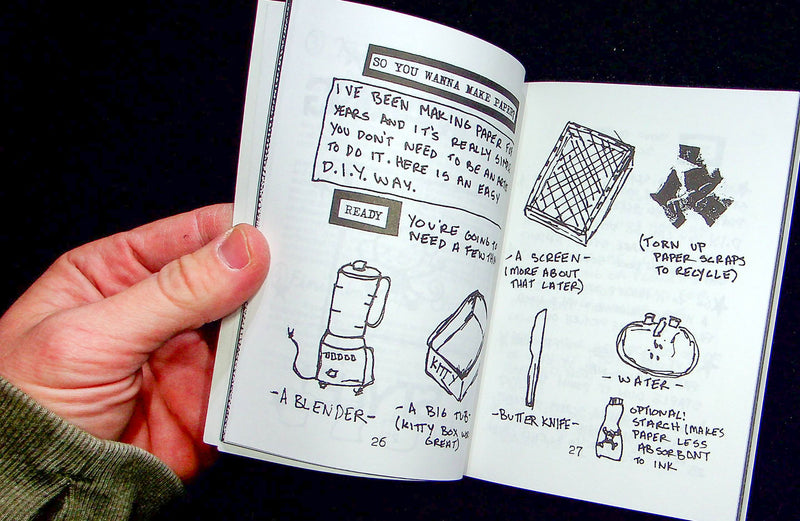 SO YOU WANNA MAKE PAPER?
I'VE BEEN MAKING PAPER
YEARS AND IT'S REALLY
YOU DON'T NEED TO BE AN
TO DO IT. HERE IS AN EASY
D.I.Y. WAY.
READY
YOU'RE GOING TO
NEED A FEW
-A BLENDER-
KITTY
- A BIG TUB
(KITTY BOX
GREAT)
26
- A SCREEN -
(MORE ABOUT
THAT LATER)
(TORN UP
PAPER SCRAPS
TO RECYCLE)
-BUTTER KNIFE-
- WATER -
OPTIONAL!
STARCH (MAKES
PAPER LESS
ABSORBANT
TO INK
27